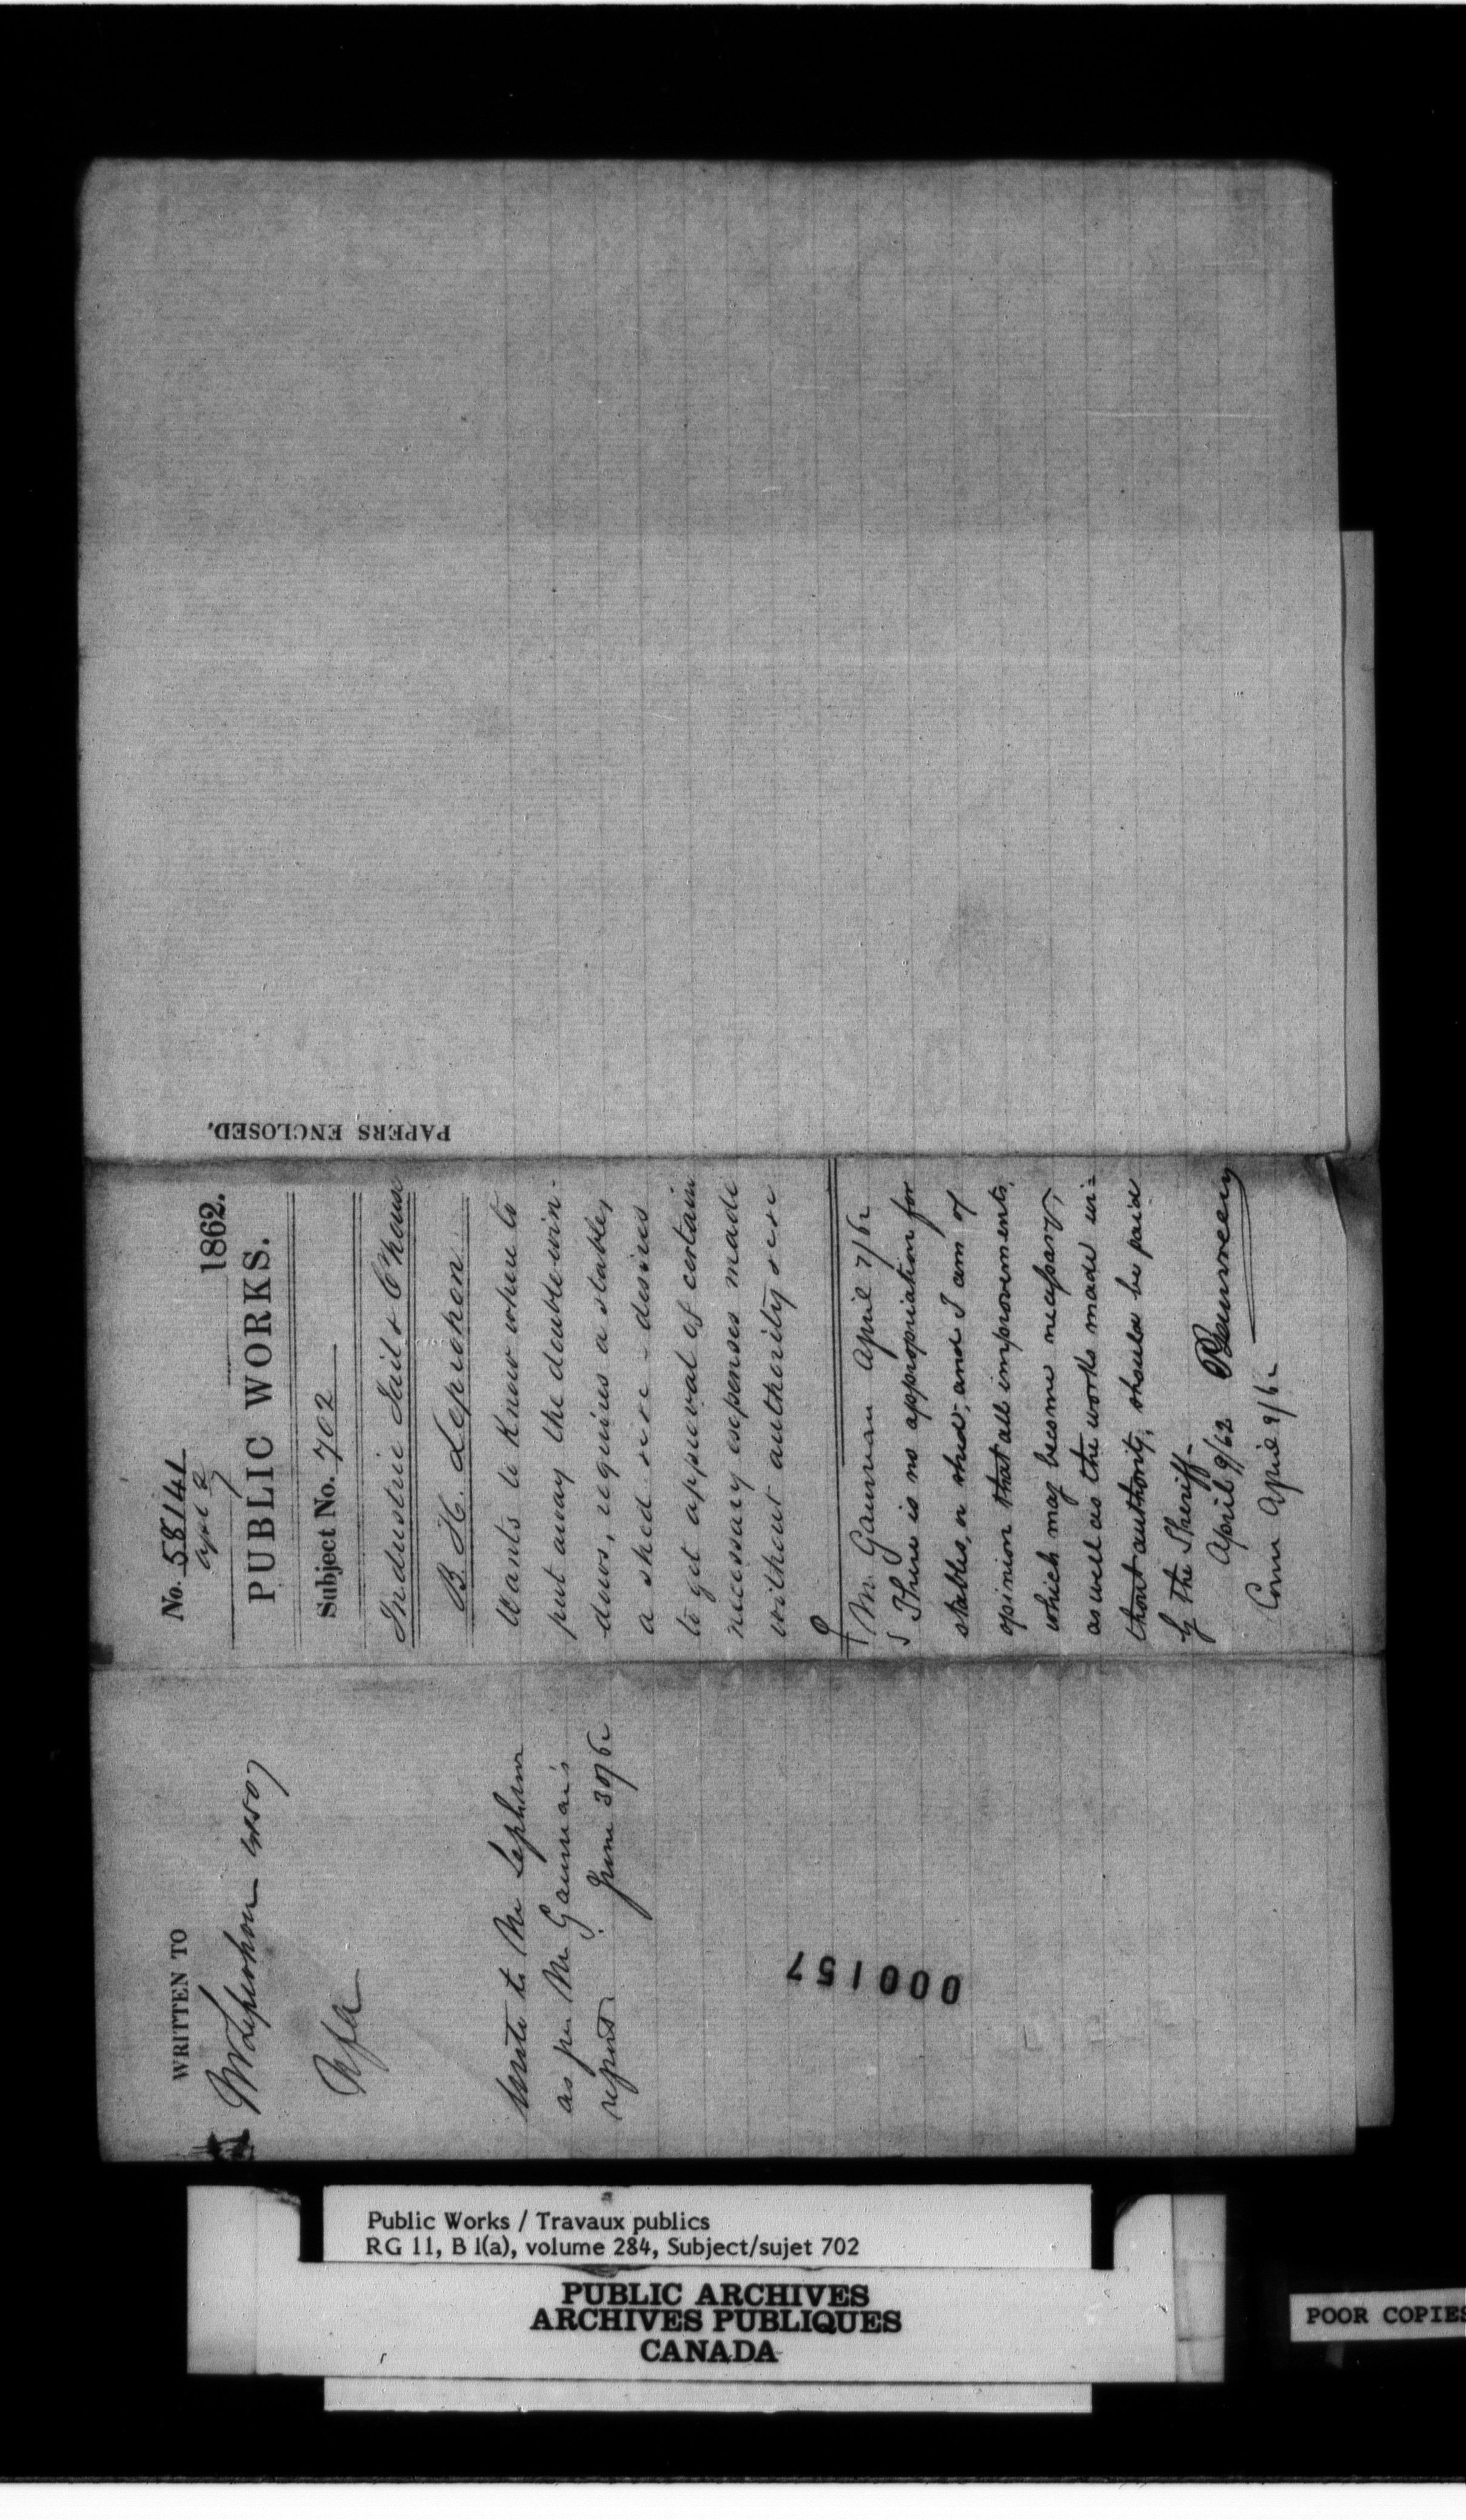 WRITTEN TO
Mr Leprohon
Write to Mr Lephron
as per Mr Gauvreau's
report June 30/62
000157
No. 58141
1862.
PUBLIC WORKS.
Subject No. 702
Industrie Jail & C House
B. H. Leprohon
Wants to know where to
put away the double win-
dows, requires a stable,
a shed &c &c - desires
to get approval of certain
necessary expenses made
without authority &c &c
Mr. Gauvreau April 7/62
There is no appropriation for
stables, or shed, and I am of
opinion that all improvements,
which may become necessary,
as well as the works made wi=
thout authority, should be paid
by the Sheriff-
April 9/62
Com April 9/62
PAPERS ENCLOSED.
Public Works / Travaux publics
RG 11, B 1(a), volume 284, Subject/sujet 702
PUBLIC ARCHIVES
ARCHIVES PUBLIQUES
CANADA
POOR COPIES